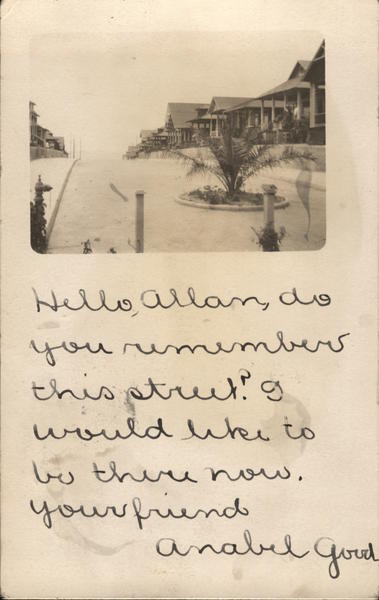 Hello, Allan, do
you remember
this street? I
would like to
be there now.
your friend
Anabel Good